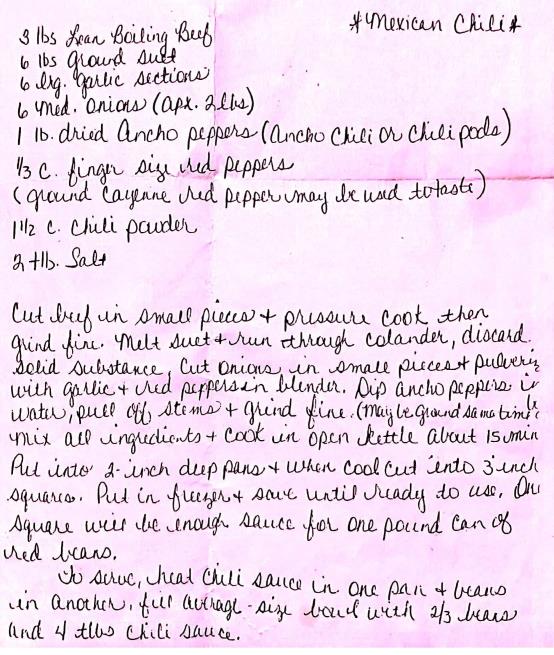 *Mexican Chili*
3 lbs Lean Boiling Beef
6 lbs Ground Suet
6 lrg. garlic sections
6 Med. Onions (apx. 2 lbs)
1 lb. dried Ancho peppers (Ancho Chili or Chili pods)
1/3 c. finger size red peppers
(ground Cayenne red pepper may be used to taste)
1 1/2 c. Chili powder
2 tlb. Salt
Cut beef in small pieces + pressure cook then
grind fine. Melt suet + run through colander, discard
solid substance, Cut Onions in small pieces + pulveriz
with garlic + red peppers in blender. Dip ancho peppers in
water, pull off stems + grind fine. (May be ground same time
Mix all ingredients + cook in open kettle about 15 min
Put into 2-inch deep pans + when cool cut into 3 inch
squares. Put in freezer + save until ready to use. One
square will be enough sauce for one pound can of
red beans.
To serve, heat chili sauce in one pan + beans
in another, fill average-size bowl with 2/3 beans
and 4 tlbs chili sauce.